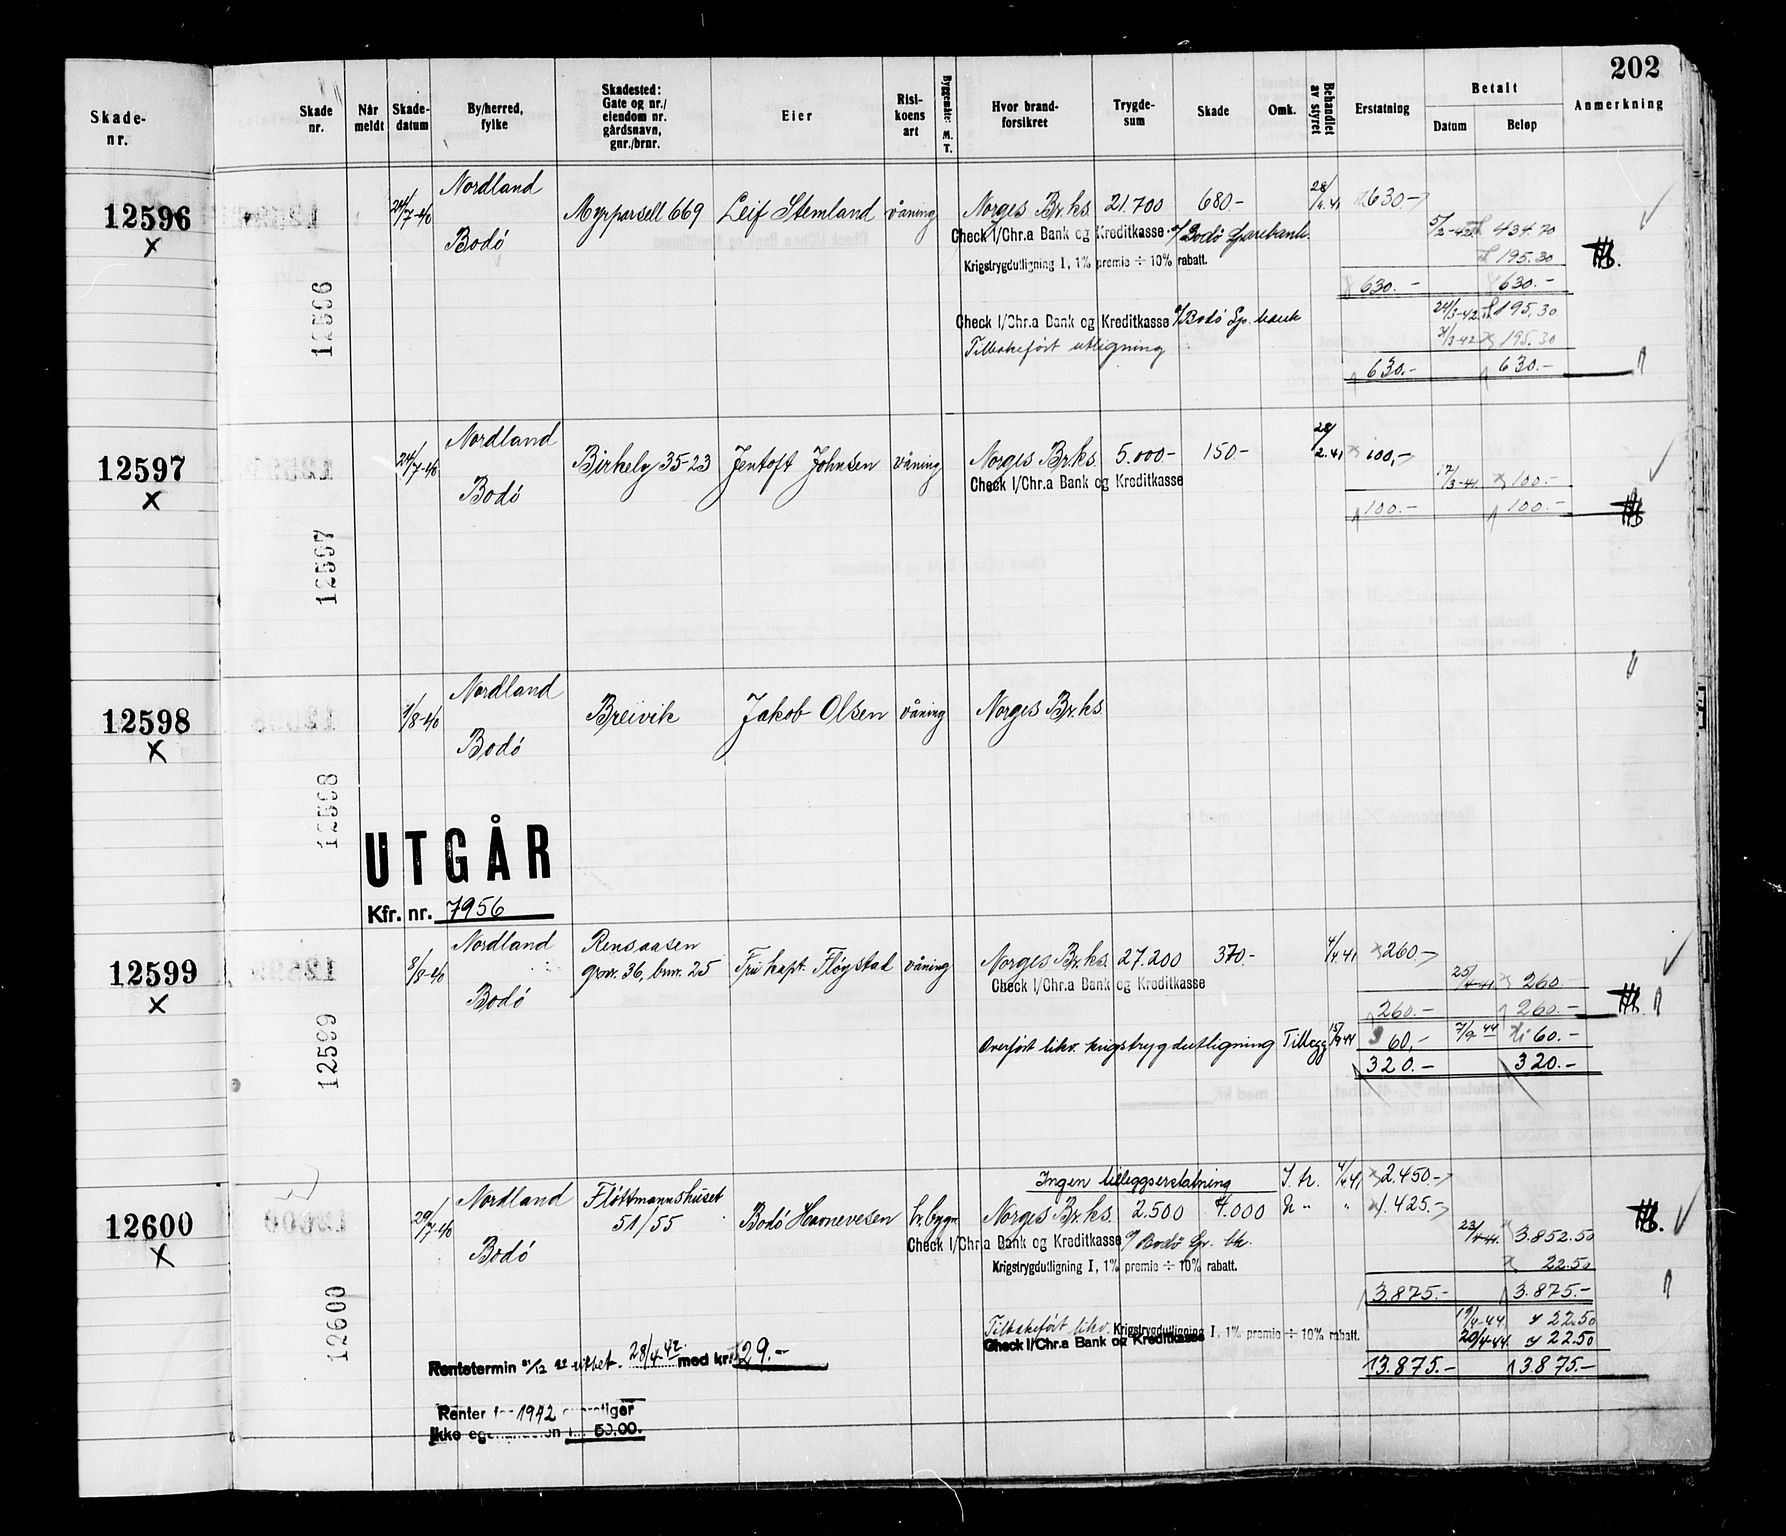 202
Skade-
nr.
Skade
nr.
Når
meldt
Skade-
datum
By/herred,
fylke
Skadested:
Gate og nr./
eiendom nr.
gårdsnavn,
gnr./brnr.
Eier
Risi-
koens
art
Byggemåte: M. T.
Hvor brand-
forsikret
Trygde-
sum
Skade
Omk.
Behandlet
av styret
Erstatning
Betalt
Datum
Beløp
Anmerkning
12596
x
12596
24/7-40
Nordland
Bodö
Myrparsell 669
Leif Stemland
våning
Norges Br.ks.
21.700
680-
28/2.41
630-
Check I/Chr.a Bank og Kreditkasse. Bodö Sparebank.
5/2-42
434.70
Krigstrygdutligning I, 1% premie ÷ 10% rabatt.
195.30
630.-
630.-
Check I/Chr.a Bank og Kreditkasse Bodö Sp. bank
24/3-42
195.30
Tilbakeført utligning
195.30
630.-
630.-
12597
x
12597
24/7-40
Nordland
Bodö
Birkely 35-23
Jentoft Johnsen
våning
Norges Br.ks.
5.000-
150-
28/2.41
100,-
Check I/Chr.a Bank og Kreditkasse
17/3-41
100.-
100.-
100.-
12598
x
12598
1/8-40
Nordland
Bodö
Breivik
Jakob Olsen
våning
Norges Br.ks
UTGÅR
Kfr. nr. 7956
12599
x
12599
8/8-40
Nordland
Bodö
Rensaasen
gnr. 36, bnr. 25
Fru kapt. Fløystad
våning
Norges Br.ks.
27.200
370-
4/4 41
260-
Check I/Chr.a Bank og Kreditkasse
25/4-41
260
260.-
260.-
Overført likv. krigstrygdutligning Tillegg
15/9 44
60,-
7/9 44
60.-
320.-
320.-
12600
x
12600
29/7-40
Nordland
Bodö
Fløttmannshuset
51/55
Bodö Havnevesen
Ingen tilleggserstatning
4/4 41
2.450.-
Norges Br.ks.
2.500
4.000
1.425.-
Check I/Chr.a Bank og Kreditkasse Bodö Sp. bk.
23/4-41.
3.852.50
Krigstrygdutligning I, 1% premie ÷ 10% rabatt.
22.50
3.875.-
3.875.-
Tilbakeført likv. Krigstrygdutligning I, 1% premie ÷ 10% rabatt.
19/4-44
22.50
Check I/Chr.a Bank og Kreditkasse
20/4-44.
22.50
3.875.-
3.875.-
Rentetermin 31/12 utbet. 28/4 42 med kr. 29.-
Renter for 1942
ikke 50.00.